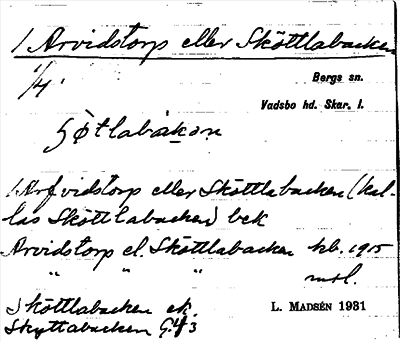 1 Arvidstorp eller Sköttlabacken
1/4.
Bergs sn.
Vadsbo hd. Skar. l.
1 Arfvidstorp eller Sköttlabacken (kal-
las Sköttlabacken) bek
Arvidstorp el. Sköttlabacken kb. 1915
" " " mtl.
Sköttlabacken ek.
Skyttabacken G.43
L. MADSÉN 1931